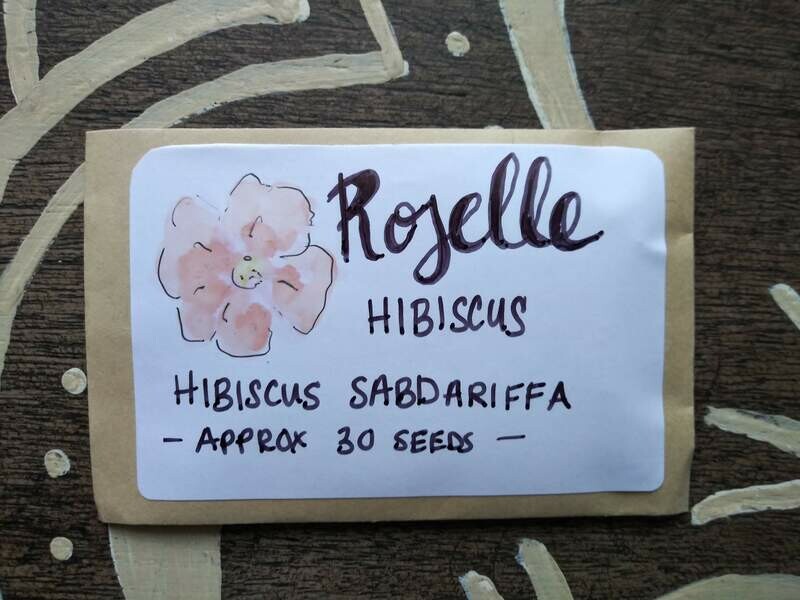 Roselle
HIBISCUS
HIBISCUS SABDARIFFA
- APPROX 30 SEEDS -